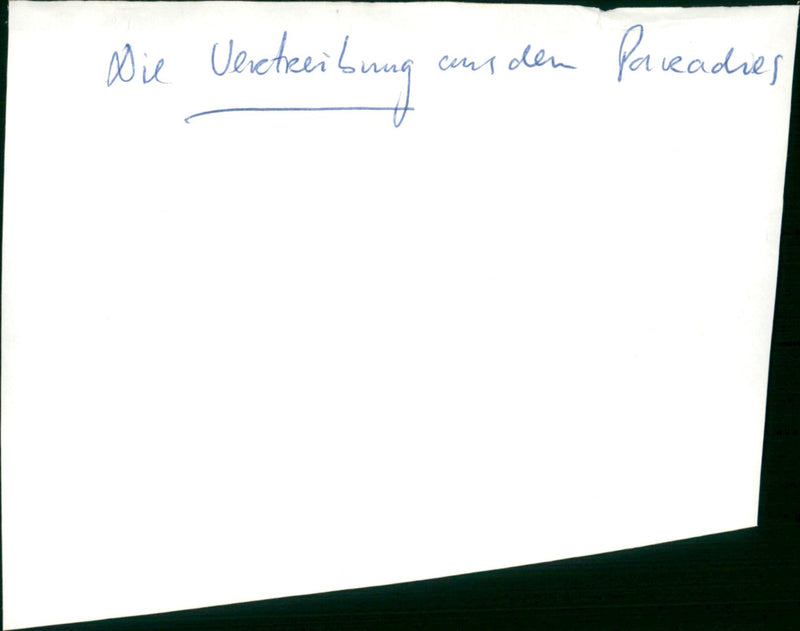 Die Vertreibung aus dem Paradies